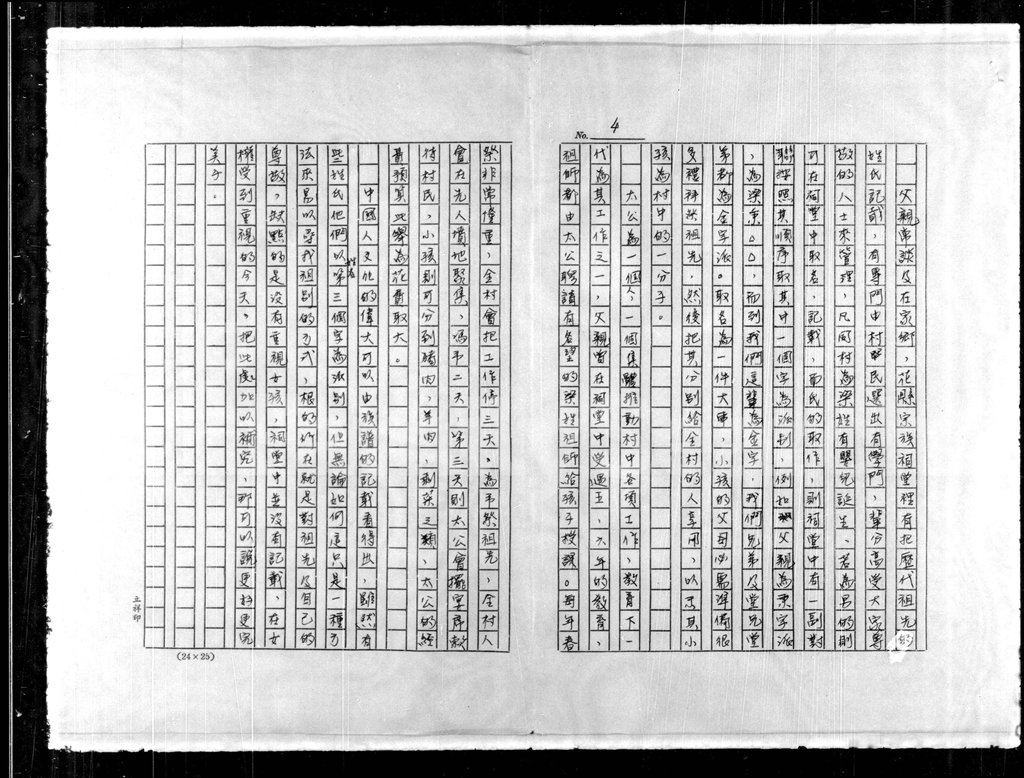 No. 4
父親常談及在家鄉，花縣宗族祠堂裡有把歷代祖先的
姓氏記載，有專門由村中民選出有學門，輩分高受大家尊
敬的人士來管理，凡同村為梁姓有嬰兒誕生，若為男的則
可在祠堂中取名，記載，而氏的取作，則祠堂中有一副對
聯按照其順序取其中一個字為派別，例如父親為秉字派
，為梁秉○○，而到我們這輩為金字，我們兄弟及堂兄堂
弟都為金字派。取名為一件大事，小孩的父母必需準備很
多禮拜祭祖先，然後把其分別給全村的人享用，以示其小
孩為村中的一分子。
太公為一個今一個集體推動村中各項工作，教育下一
代為其工作之一，父親曾在祠堂中受過五、六年的教育，
祖師都由太公聘請有名望的梁姓祖師給孩子授課。每年春
祭非常隆重，全村會把工作停三天。為弔祭祖先，全村人
會在先人墳地聚集，馮弔二天，第三天則太公會擺宴席款
待村民，小孩則可分到豬肉、羊肉、剩菜之類，太公的經
費預算此舉為花費最大。
中國人文化的偉大可以由族譜的記載看得出，雖然有
些姓氏他們以姓名第三個字為派別，但無論如何這只是一種方
法原易以尋找祖別的方式，根的所在就是對祖先及自己的
尊敬，缺點的是沒有重視女孩，祠堂中並沒有記載，在女
權受到重視的今天，把此處加以補充，那可以說更好更完
美了。
立祥印
(24×25)